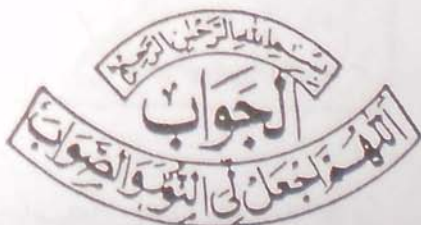 بسم الله الرحمن الرحيم
الجواب
اللهم اجعل لی النور والصواب